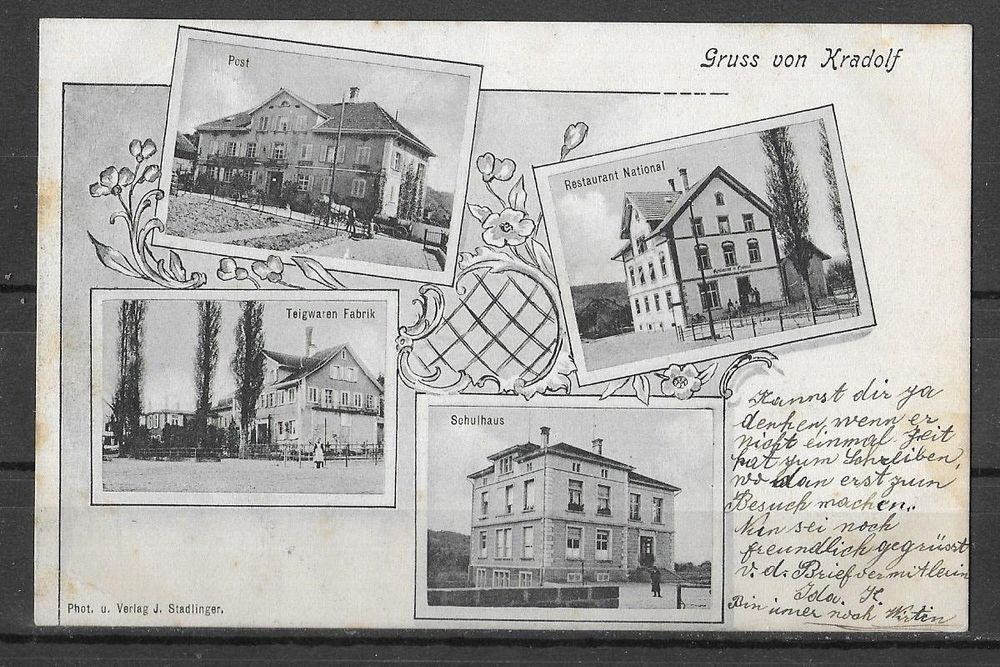 Gruss von Kradolf
Post
Restaurant National
Teigwaren Fabrik
Schulhaus
Kannst dir ja
denken, wenn er
nicht einmal Zeit
hat zum Schreiben,
wo dan erst zum
Besuch machen.
Nun sei noch
freundlich gegrüsst
v. d. Briefvermitlerin
Ida. H.
Bin imer noch Wirtin
Phot. u. Verlag J. Stadlinger.